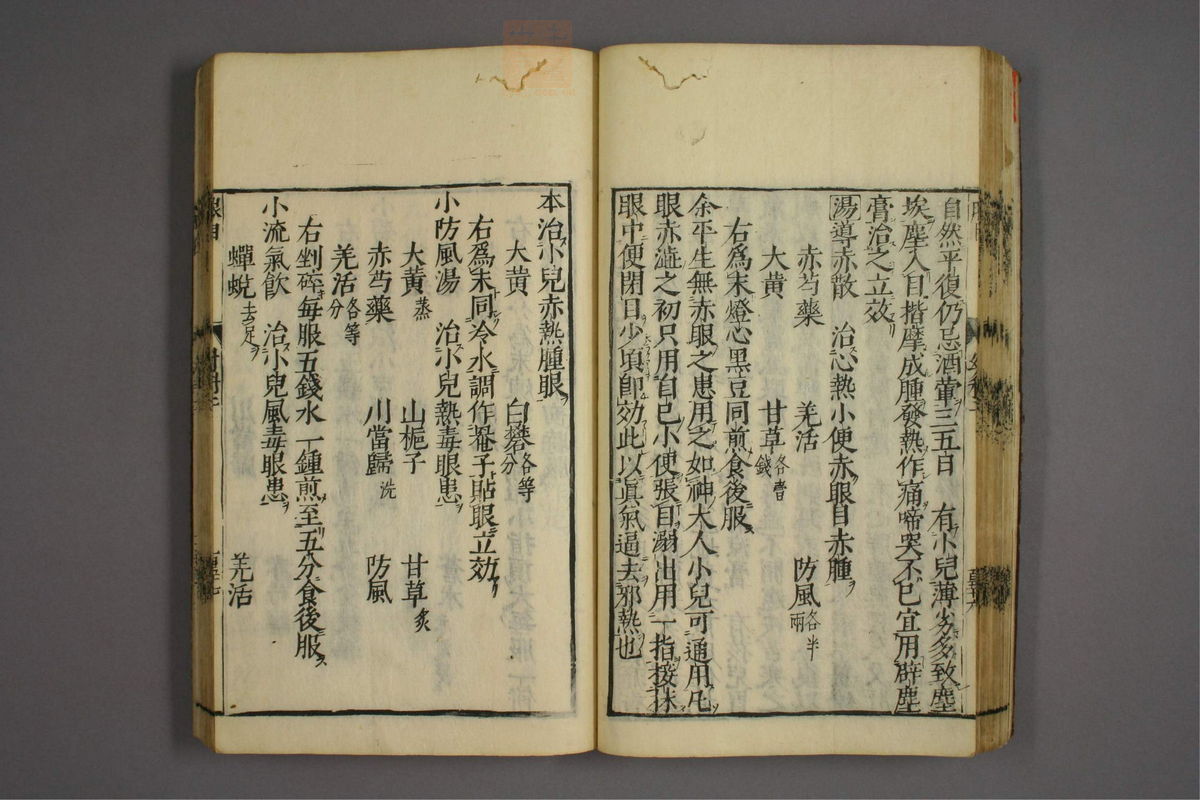 自然平復仍忌酒葷三五日　有小兒薄劣多致塵
埃塵入目揩摩成腫發熱作痛啼哭不已宜用辟塵
膏治之立效
湯導赤散　治心熱小便赤眼目赤腫
赤芍藥　羌活　防風各半兩
大黃　甘草各壹錢
右爲末燈心黑豆同煎食後服
余平生無赤眼之患用之如神大人小兒可通用凡
眼赤澁之初只用自己小便張目溺出用一指接抹
眼中便閉目少頃即效此以眞氣逼去邪熱也
本治小兒赤熱腫眼
大黃　白礬各等分
右爲末同冷水調作罨子貼眼立効
小防風湯　治小兒熱毒眼患
大黃蒸　山梔子　甘草炙
赤芍藥　川當歸洗　防風
羌活各等分
右剉碎每服五錢水一鍾煎至五分食後服
小流氣飲　治小兒風毒眼患
蟬蛻去足　羌活
眼目